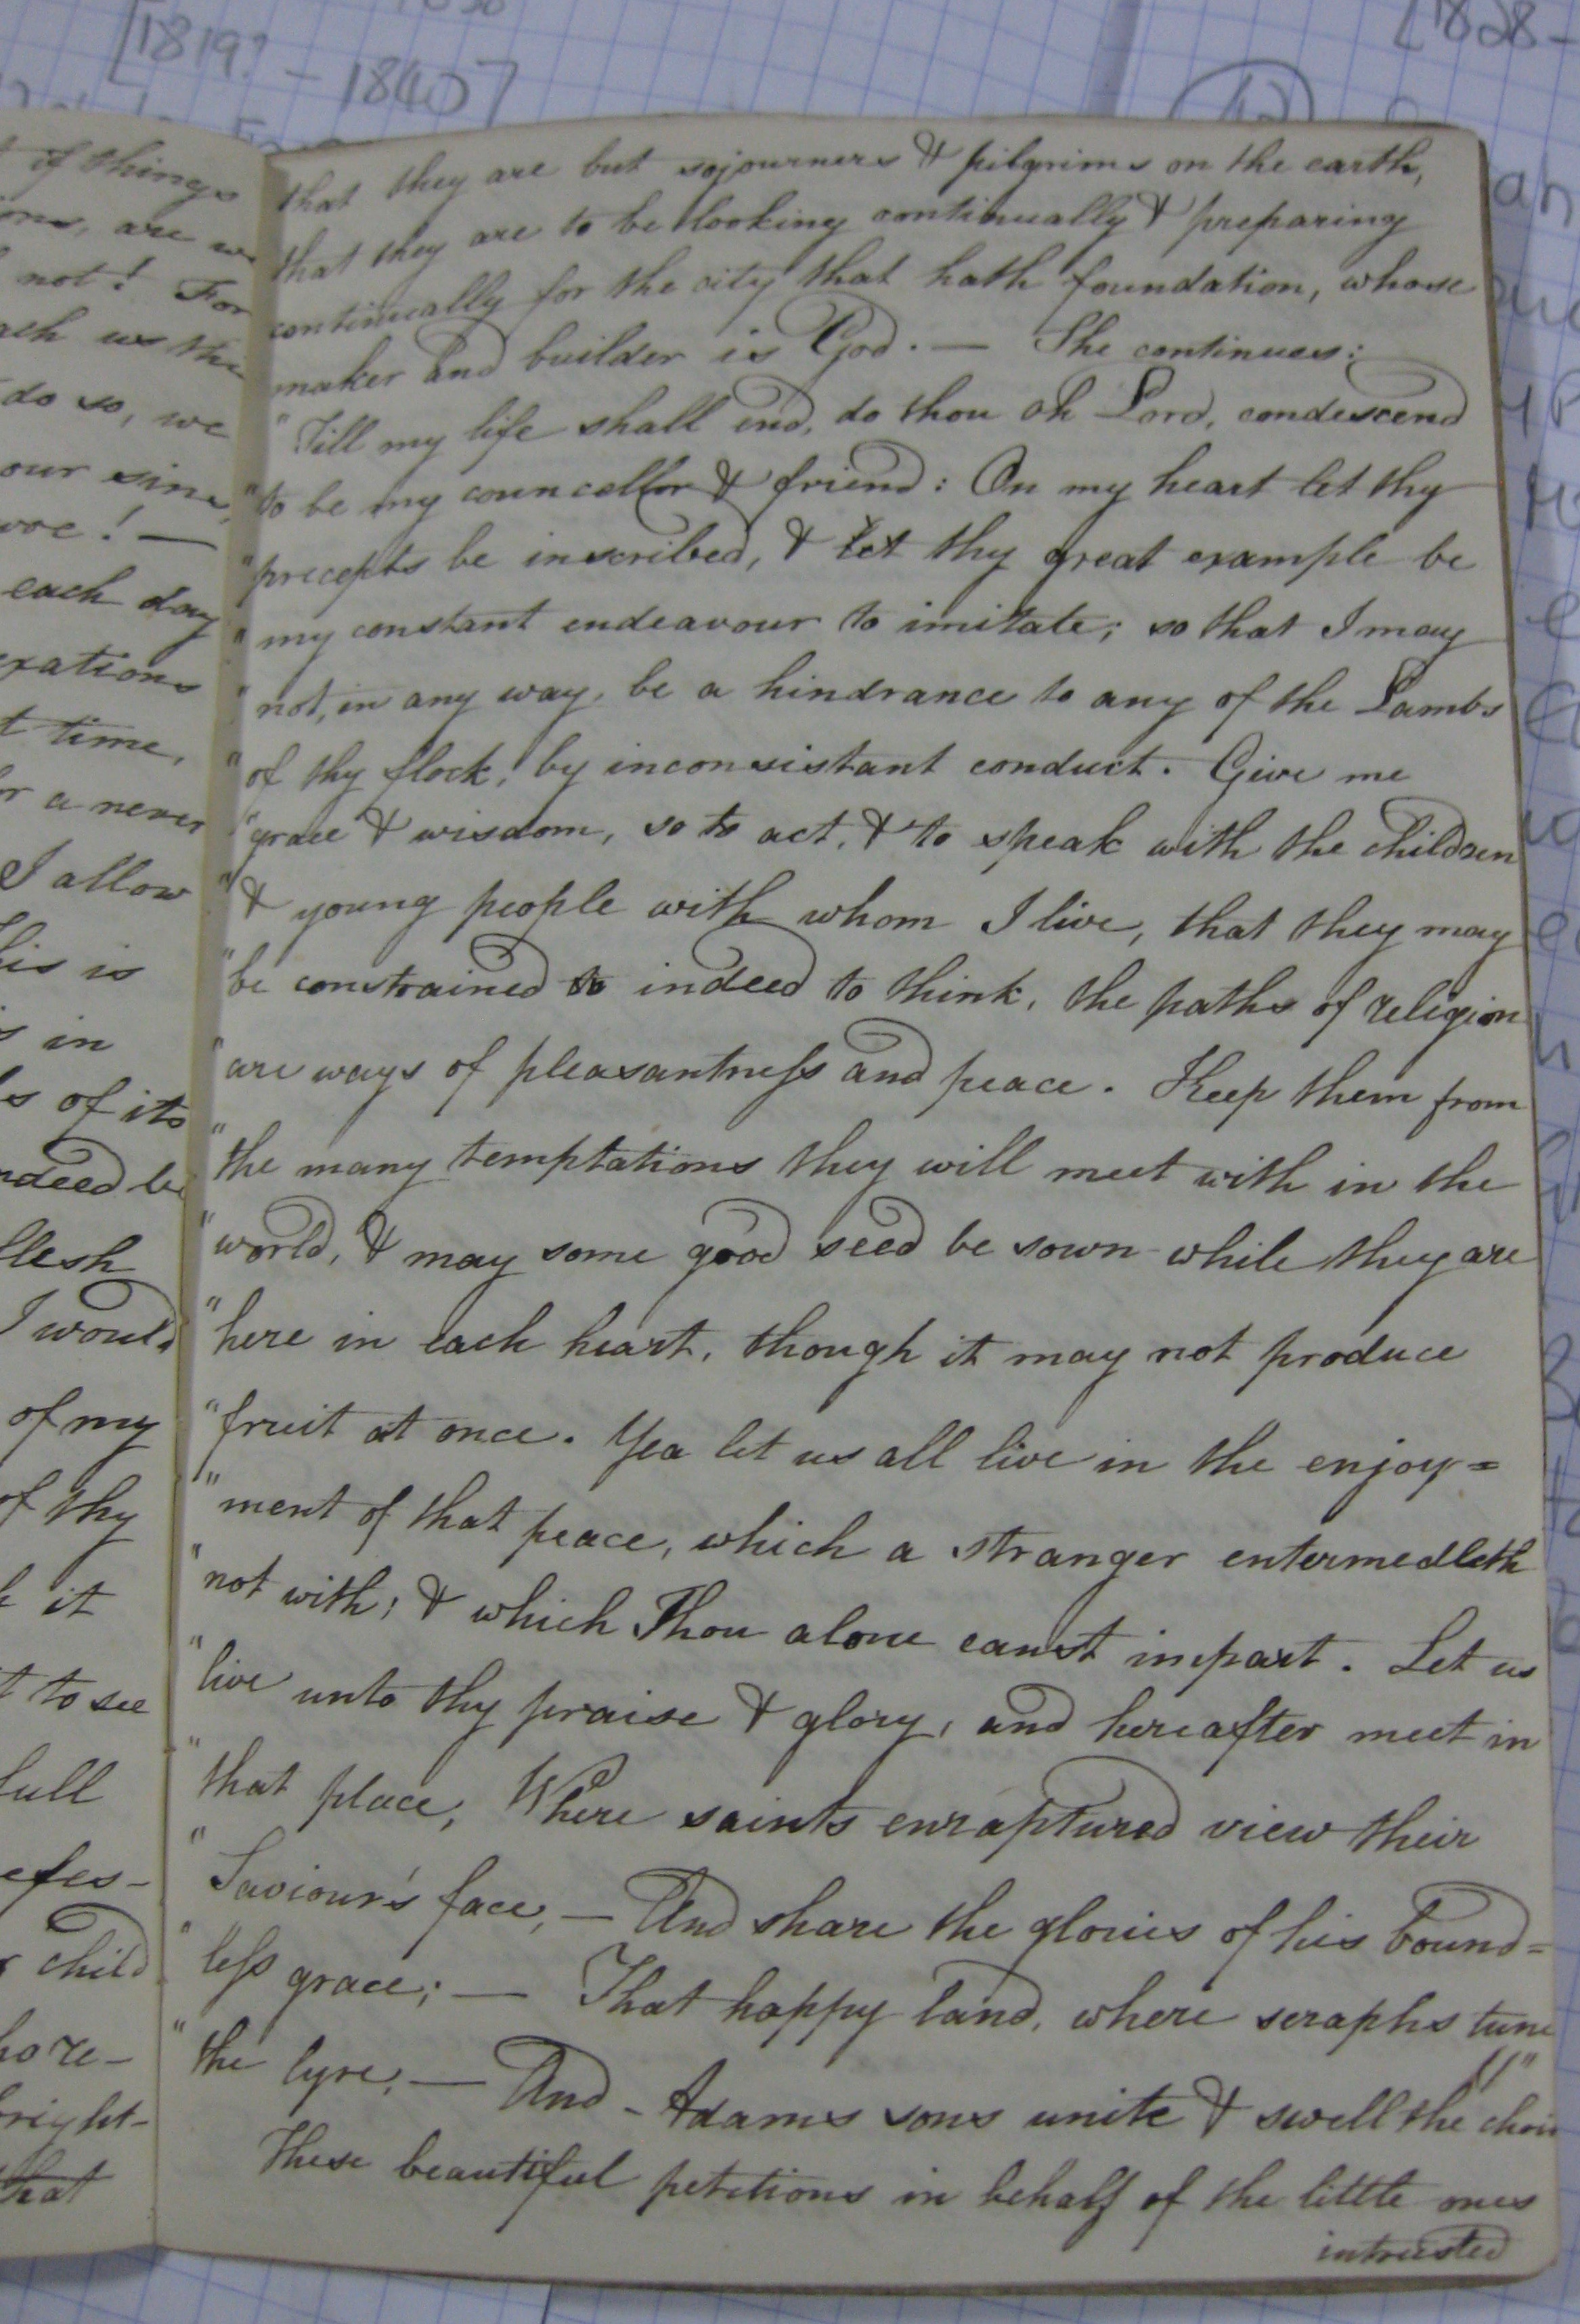 [1819? - 1840]
[1828-
if things
are we
not! For
us this
do so, we
our sins,
woe! —
each day
t time,
a never
I allow
is
in
of its
indeed be
flesh
I would
of my
of thy
it
to see
full
child
right-
that
that they are but sojourners & pilgrims on the earth,
that they are to be looking continually & preparing
continually for the city that hath foundation, whose
maker and builder is God. — She continues:
"Till my life shall end, do thou oh Lord, condescend
"to be my councellor & friend: On my heart let thy
"precepts be inscribed, & let thy great example be
"my constant endeavour to imitate; so that I may
"not, in any way, be a hindrance to any of the Lambs
"of thy flock, by inconsistant conduct. Give me
"grace & wisdom, so to act, & to speak with the children
"& young people with whom I live, that they may
"be constrained to indeed to think, the paths of religion
"are ways of pleasantness and peace. Keep them from
"the many temptations they will meet with in the
"world, & may some good seed be sown while they are
"here in each heart, though it may not produce
"fruit at once. Yea let us all live in the enjoy=
"ment of that peace, which a stranger entermedleth
"not with; & which Thou alone canst impart. Let us
"live unto thy praise & glory, and hereafter meet in
"that place, Where saints enraptured view their
"Saviour's face, — And share the glories of his bound=
"less grace; — That happy land, where seraphs tune
"the lyre, — And - Adams sons unite & swell the choir"
These beautiful petitions in behalf of the little ones
intrusted